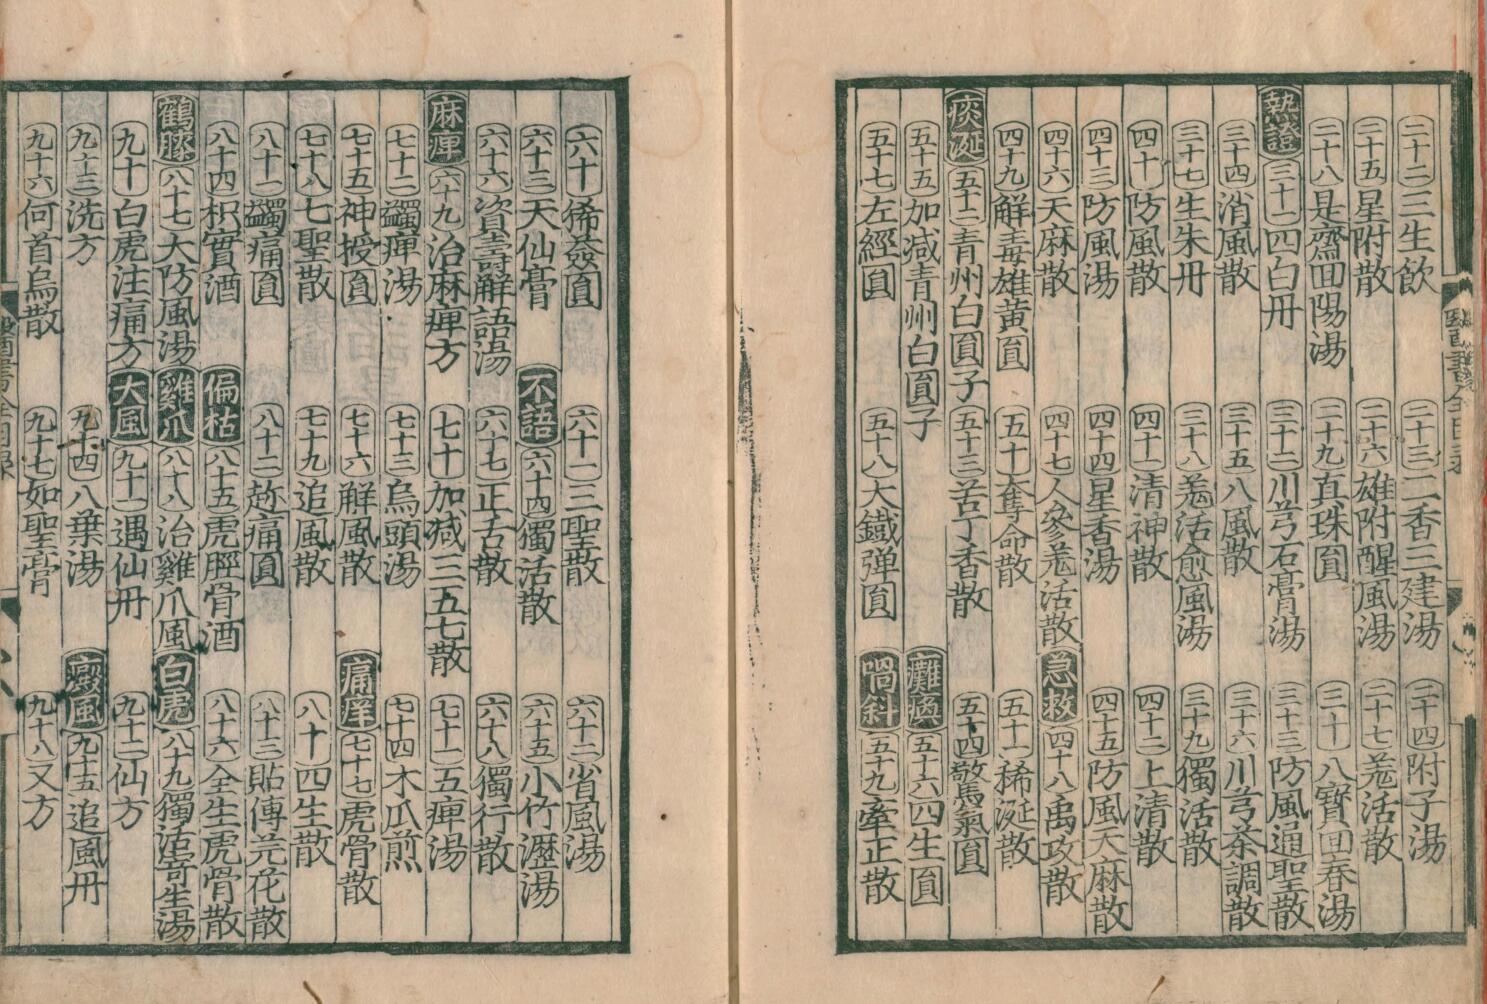 二十二三生飲 二十三二香三建湯 二十四附子湯
二十五星附散 二十六雄附醒風湯 二十七羗活散
二十八是齋囬陽湯 二十九真珠圎 三十八寶囬春湯
熱證 三十一四白丹 三十二川芎石膏湯 三十三防風通聖散
三十四消風散 三十五八風散 三十六川芎茶調散
三十七生朱丹 三十八羗活愈風湯 三十九獨活散
四十防風散 四十一清神散 四十二上清散
四十三防風湯 四十四星香湯 四十五防風天麻散
四十六天麻散 四十七人參羗活散 急救 四十八禹攻散
四十九解毒雄黃圎 五十奪命散 五十一稀涎散
痰涎 五十二青州白圎子 五十三苦丁香散 五十四驚氣圎
五十五加减青州白圎子 癱瘓 五十六四生圎
五十七左經圎 五十八大鐵弹圎 喎斜 五十九牽正散
六十豨薟圎 六十一三聖散 六十二省風湯
六十三天仙膏 不語 六十四獨活散 六十五小竹瀝湯
六十六資壽解語湯 六十七正舌散 六十八獨行散
麻痺 六十九治麻痺方 七十加减三五七散 七十一五痺湯
七十二蠲痺湯 七十三烏頭湯 七十四木瓜煎
七十五神授圎 七十六解風散 痛痒 七十七虎骨散
七十八七聖散 七十九追風散 八十四生散
八十一蠲痛圎 八十二趂痛圎 八十三貼傅芫花散
八十四枳實酒 偏枯 八十五虎脛骨酒 八十六全生虎骨散
鶴膝 八十七大防風湯 雞爪 八十八治雞爪風 白虎 八十九獨活寄生湯
九十白虎注痛方 大風 九十一遇仙丹 九十二仙方
九十三洗方 九十四八葉湯 癜風 九十五追風丹
九十六何首烏散 九十七如聖膏 九十八又方